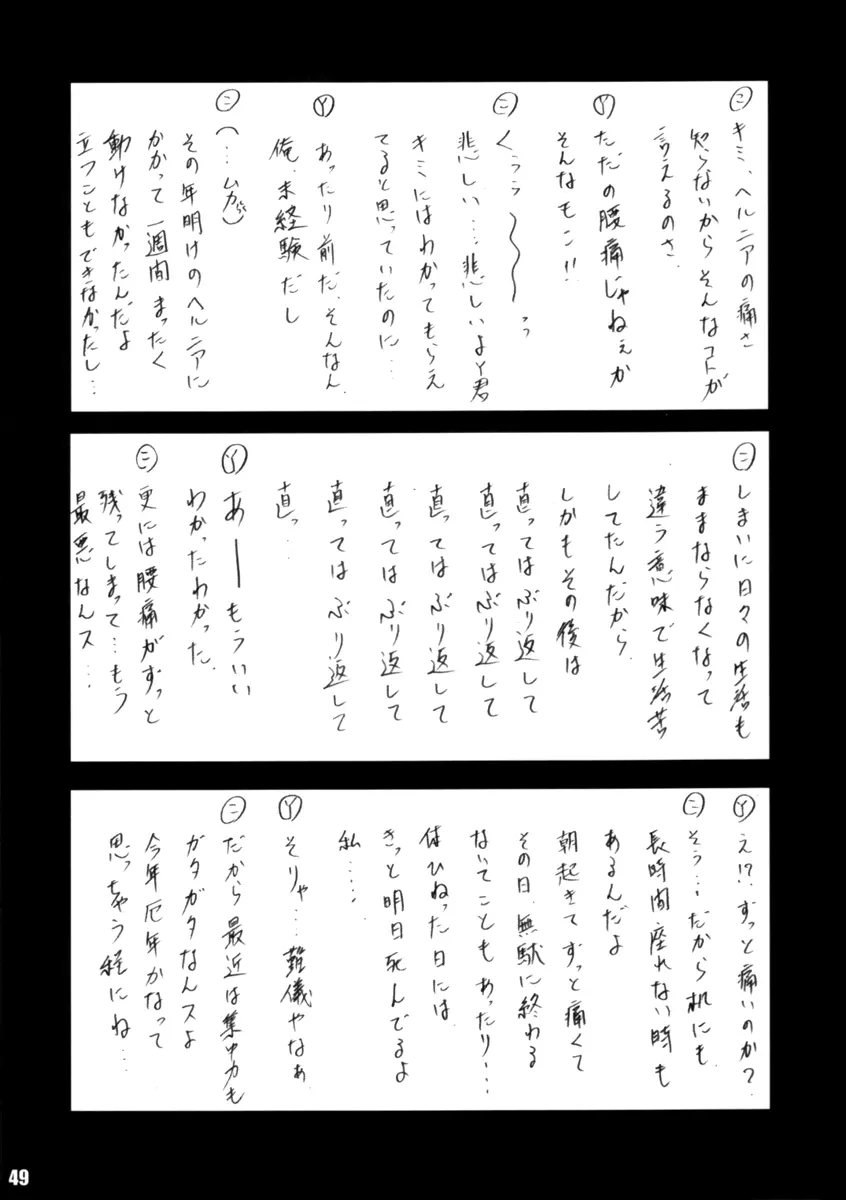 ㋥ キミ、ヘルニアの痛さ
知らないからそんなコトが
言えるのさ.
Ⓨ ただの腰痛じゃねぇか
そんなもン!!
㋥ くぅぅ〜〜〜っ
悲しい…悲しいよY君
キミにはわかってもらえ
てると思っていたのに…
Ⓨ あったり前だ.そんなん.
俺.未経験だし
㋥ (…ムカ)
その年明けのヘルニアに
かかって一週間まったく
動けなかったんだよ
立つこともできなかったし…
㋥ しまいに日々の生活も
ままならなくなって
違う意味で生活苦
してたんだから
しかもその後は
直ってはぶり返して
直ってはぶり返して
直ってはぶり返して
直ってはぶり返して
直ってはぶり返して
直っ…
Ⓨ あーーもういい
わかったわかった.
㋥ 更には腰痛がずっと
残ってしまって…もう
最悪なんス…
Ⓨ え!?ずっと痛いのか?
㋥ そう…だから机にも
長時間座れない時も
あるんだよ
朝起きてずっと痛くて
その日.無駄に終わる
ないてこともあったり…
体ひねった日には
きっと明日死んでるよ
私…
Ⓨ そりゃ…難儀やなぁ
㋥ だから最近は集中力も
ガタガタなんスよ
今年厄年かなって
思っちゃう程にね…
49